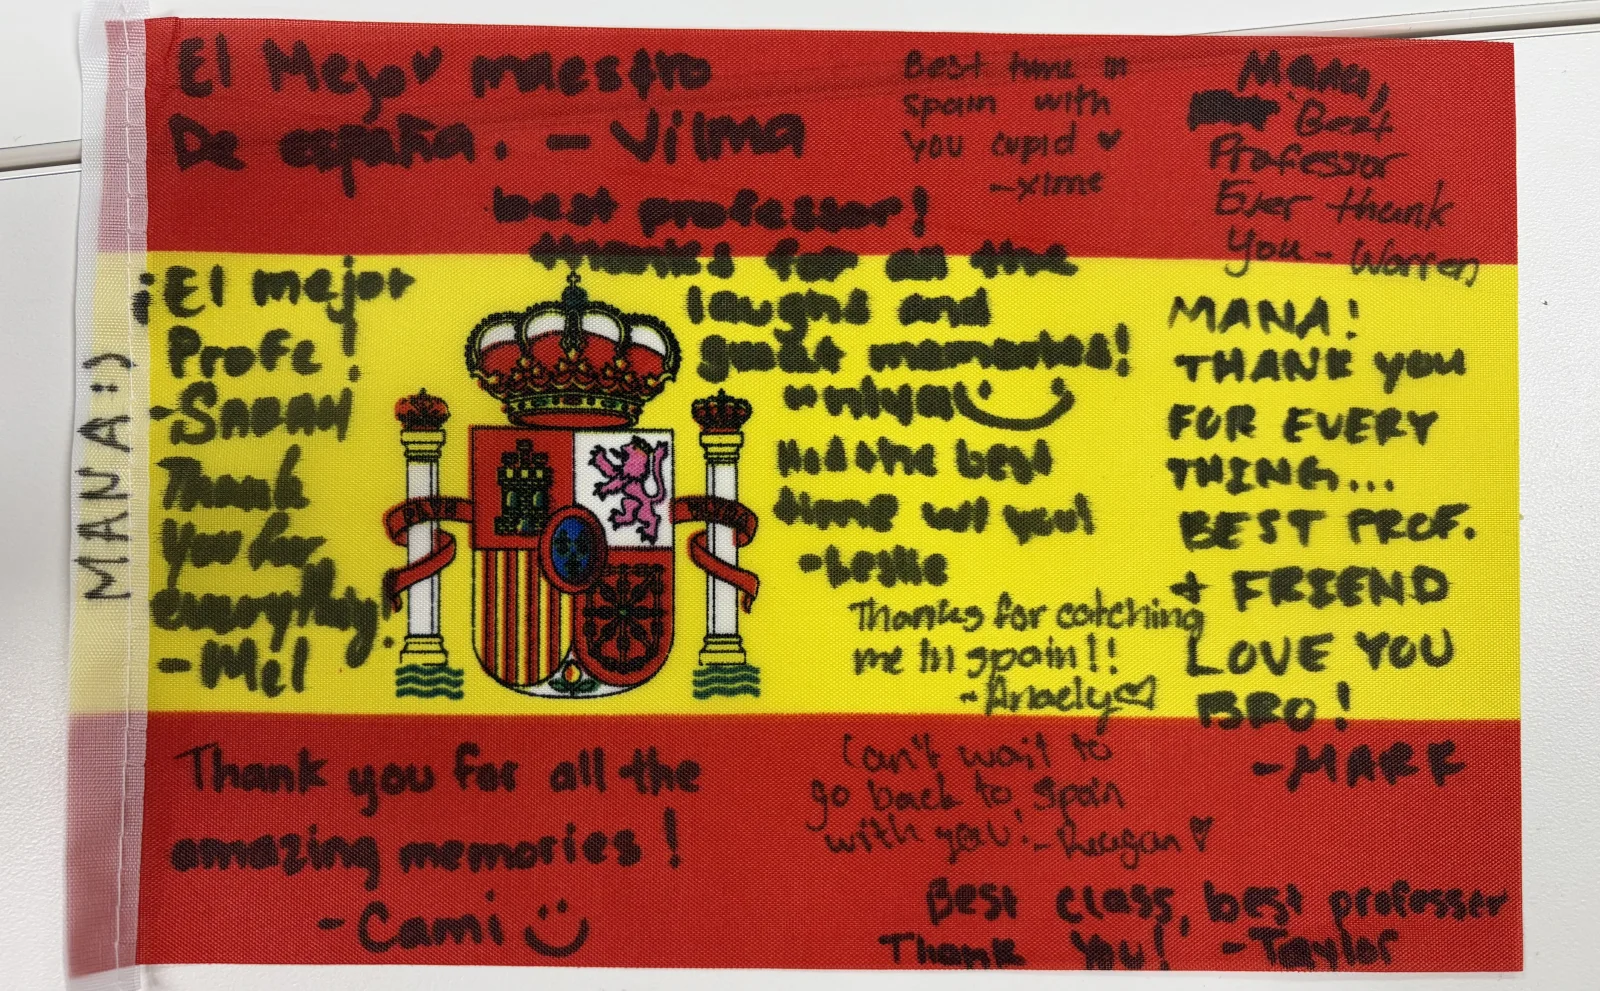 El Meyor maestro
De españa. - Vilma
Best time in
Spain with
you cupid ♥
-xime
Mana,
Best
Professor
Ever thank
You - Warren
best professor!
thanks for all the
laughs and
great memories!
Had the best
time w/ you!
-Leslie
¡El mejor
Profe!
-SARAH
Thank
you for
everything!
-Mel
MANA :)
PLVS
VLTRA
MANA!
THANK YOU
FOR EVERY
THING...
BEST PROF.
+ FRIEND
LOVE YOU
BRO!
-MARK
Thanks for catching
me in spain!!
-Araely♡
Thank you for all the
amazing memories!
-Cami
Can't wait to
go back to spain
with you! -Reagan ♥
Best class, best professer
Thank You! -Taylor